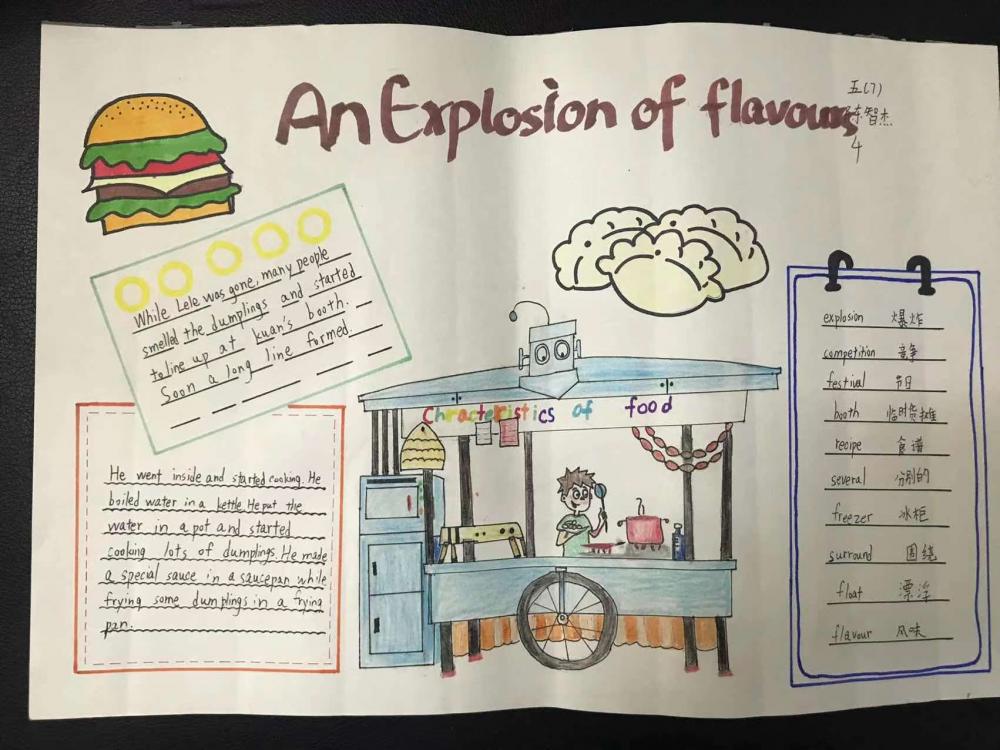 An Explosion of flavours
五(7)
智杰
4
While Lele was gone, many people
smelled the dumplings and started
to line up at kuan's booth.
Soon a long line formed.
Chracteristics of food
He went inside and started cooking. He
boiled water in a kettle. He put the
water in a pot and started
cooking lots of dumplings. He made
a special sauce in a saucepan while
frying some dumplings in a frying
pan.
explosion 爆炸
competition 竞争
festival 节日
booth 临时货摊
recipe 食谱
several 分别的
freezer 冰柜
surround 围绕
float 漂浮
flavour 风味